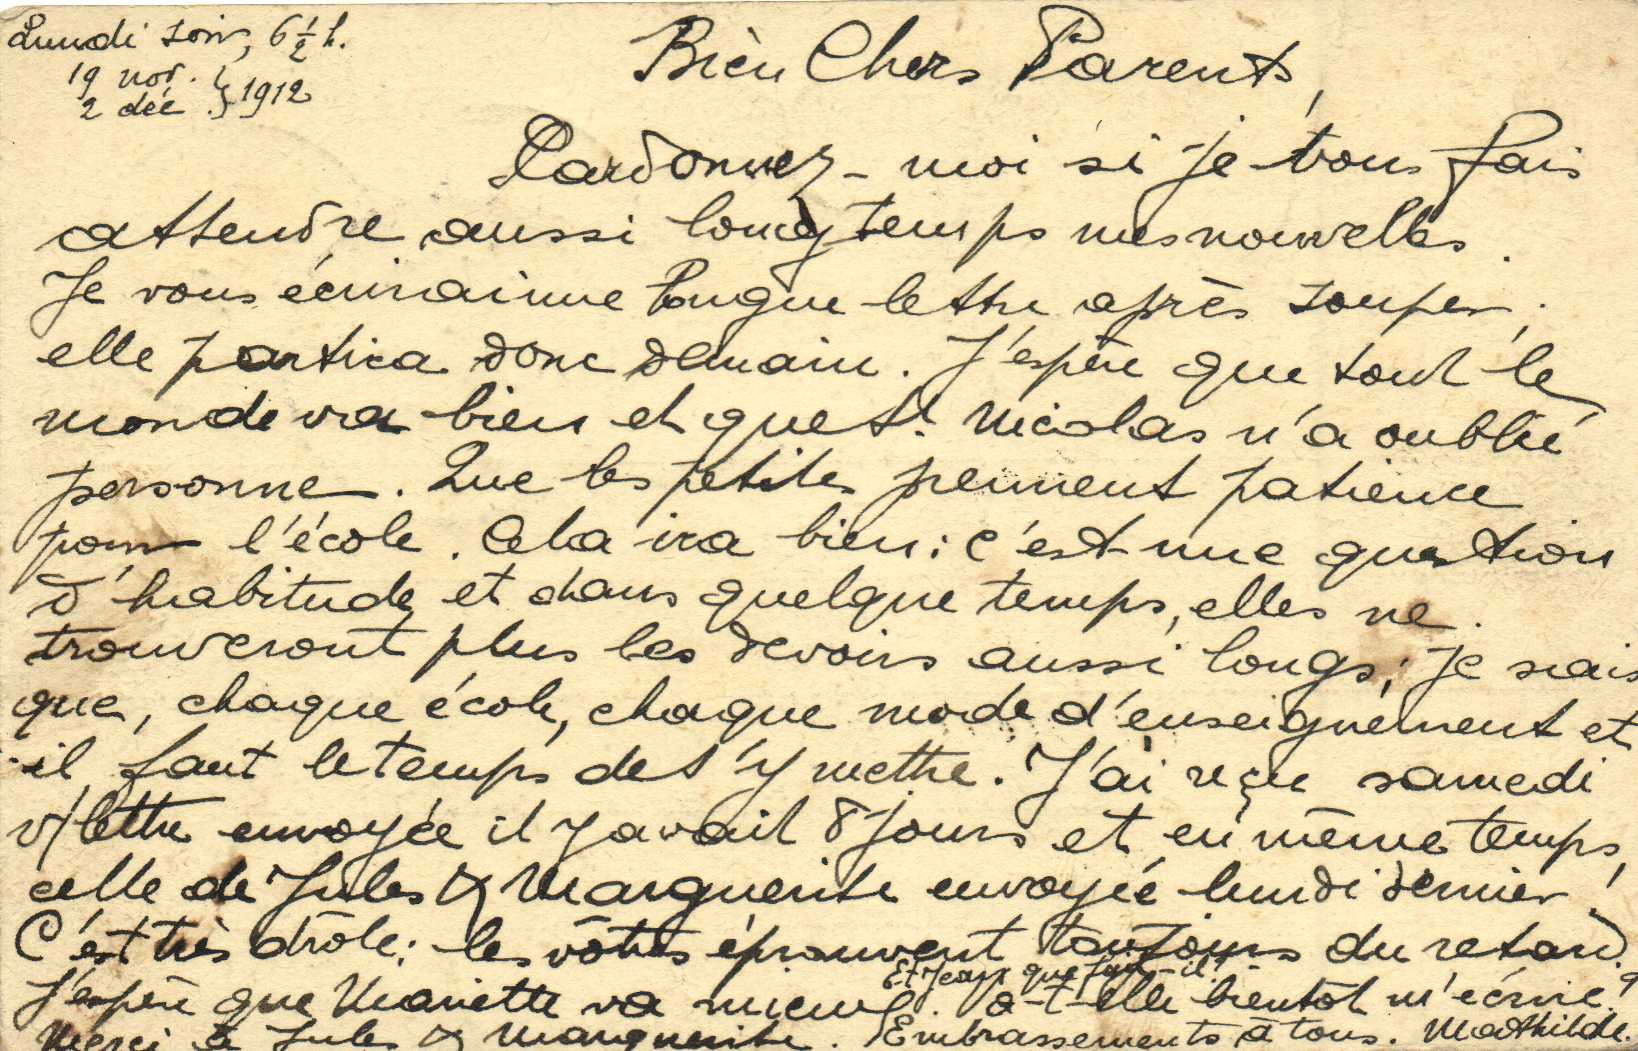 Lundi soir, 6 ½ h.
19 nov. } 1912
2 déc. }
Bien Chers Parents,
Pardonnez-moi si je vous fais
attendre aussi longtemps mes nouvelles.
Je vous écrirai une longue lettre après souper;
elle partira donc demain. J'espère que tout le
monde va bien et que St Nicolas n'a oublié
personne. Que les petites prennent patience
pour l'école. Cela ira bien: c'est une question
d'habitude et dans quelque temps, elles ne
trouveront plus les devoirs aussi longs; je sais
que, chaque école, chaque mode d'enseignement et
il faut le temps de s'y mettre. J'ai reçu samedi
v/lettre envoyée il y avait 8 jours et en même temps,
celle de Jules & Marguerite envoyée lundi dernier!
C'est très drôle: les vôtres éprouvent toujours du retard.
Et Jean que fait-il?
J'espère que Mariette va mieux. a-t-elle bientôt m'écrire?
Merci à Jules & Marguerite. Embrassements à tous. Mathilde.